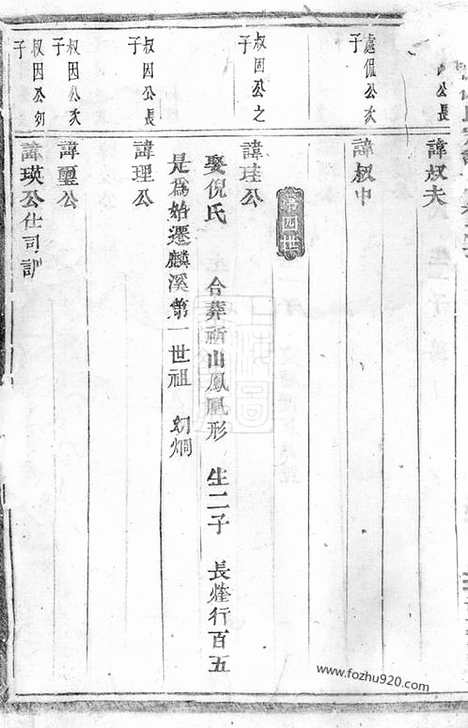 公長
諱叔夫
處侃公次子
諱叔中
第四世
叔因公之子
諱珪公
娶倪氏 合葬祈山鳳凰形 生二子 長煃行百五
是為始遷麟溪第一世祖 幼烱
叔因公長子
諱理公
叔因公次子
諱璽公
叔因公幼子
諱瑛公仕司訓
www.fozhu920.com